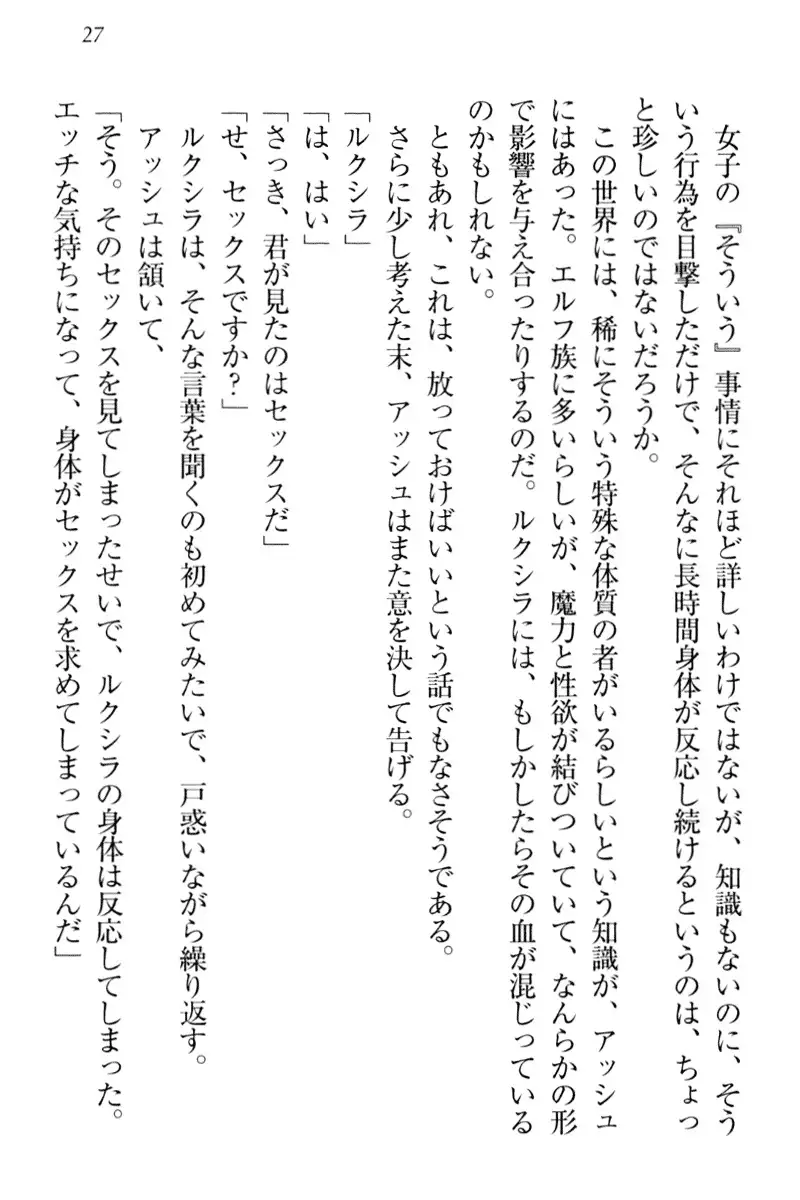 27
女子の『そういう』事情にそれほど詳しいわけではないが、知識もないのに、そう
いう行為を目撃しただけで、そんなに長時間身体が反応し続けるというのは、ちょっ
と珍しいのではないだろうか。
この世界には、稀にそういう特殊な体質の者がいるらしいという知識が、アッシュ
にはあった。エルフ族に多いらしいが、魔力と性欲が結びついていて、なんらかの形
で影響を与え合ったりするのだ。ルクシラには、もしかしたらその血が混じっている
のかもしれない。
ともあれ、これは、放っておけばいいという話でもなさそうである。
さらに少し考えた末、アッシュはまた意を決して告げる。
「ルクシラ」
「は、はい」
「さっき、君が見たのはセックスだ」
「せ、セックスですか？」
ルクシラは、そんな言葉を聞くのも初めてみたいで、戸惑いながら繰り返す。
アッシュは頷いて、
「そう。そのセックスを見てしまったせいで、ルクシラの身体は反応してしまった。
エッチな気持ちになって、身体がセックスを求めてしまっているんだ」